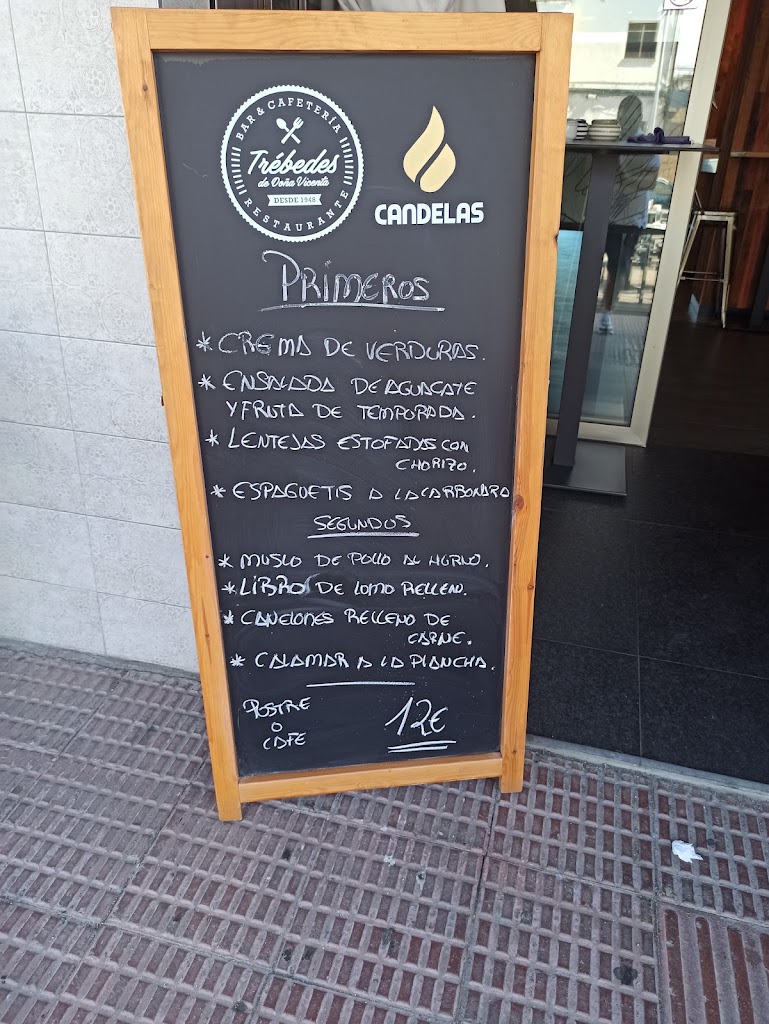 BAR & CAFETERÍA
Trébedes
de Doña Vicenta
DESDE 1948
RESTAURANTE
CANDELAS
PRIMEROS
* CREMA DE VERDURAS.
* ENSALADA DE AGUACATE
Y FRUTA DE TEMPORADA.
* LENTEJAS ESTOFADAS CON
CHORIZO.
* ESPAGUETIS A LA CARBONARA
SEGUNDOS
* MUSLO DE POLLO AL HORNO.
* LIBRO DE LOMO RELLENO.
* CANELONES RELLENO DE
CARNE.
* CALAMAR A LA PLANCHA.
POSTRE
O
CAFE
12€